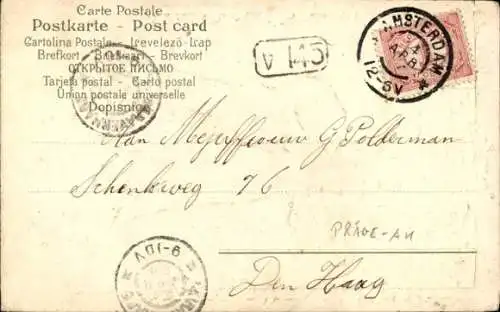 Carte Postale
Postkarte - Post card
Cartolina Postale - Levelezö-Lap
Brefkort - Briefkaart - Brevkort
ОТКРЫТОЕ ПИСЬМО
Tarjeta postal - Carto postal
Union postale universelle
Dopisnice
AMSTERDAM
12-6V
Aan Mejuffrouw G Polderman
Schenkweg 76
PRÄGE-AK
Den Haag
9-10V